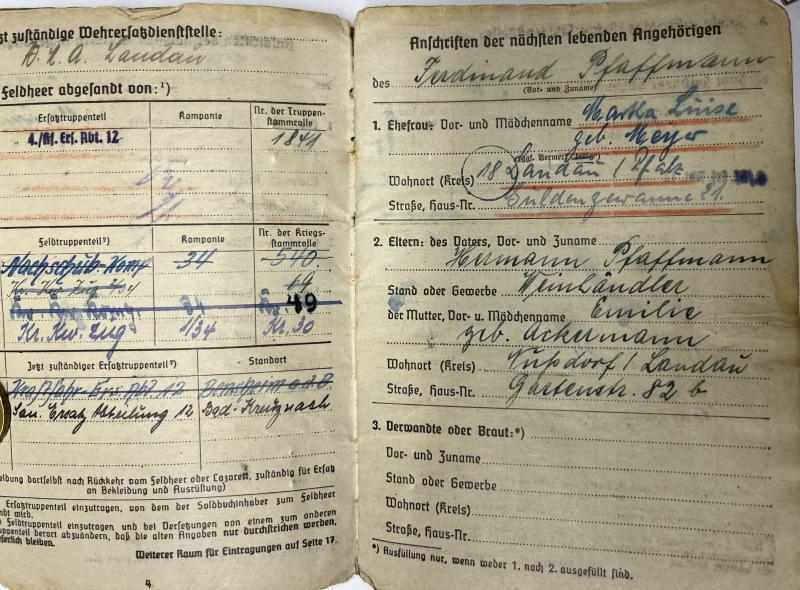 zt zuständige Wehrersatzdienststelle:
W. M. A. Landau
Feldheer abgesandt von:¹)
Ersatztruppenteil
Kompanie
Nr. der Truppen-
stammrolle
4./Kf. Ers. Abt. 12
1841
Feldtruppenteil²)
Kompanie
Nr. der Kriegs-
stammrolle
Nachschub-Komp
34
540
Kr. Kw. Zug 2/34
69
34
49
Kr. Kw. Zug
1/34
Kr. 30
Jetzt zuständiger Ersatztruppenteil³)
Standort
Kraftfahr-Ers. Abt. 12
Bensheim a d B
San. Ersatz Abteilung 12
Bad-Kreuznach
eldung dortselbst nach Rückkehr vom Feldheer oder Lazarett, zuständig für Ersatz
an Bekleidung und Ausrüstung)
Ersatztruppenteil einzutragen, von dem der Soldbuchinhaber zum Feldheer
ndt wird.
Feldtruppenteil einzutragen und bei Versetzungen von einem zum anderen
uppenteil derart abzuändern, daß die alten Angaben nur durchstrichen werden,
eserlich bleiben.
Weiterer Raum für Eintragungen auf Seite 17.
4
Anschriften der nächsten lebenden Angehörigen
des Ferdinand Pfaffmann
(Vor- und Zuname)
1. Ehefrau: Vor- und Mädchenname Martha Luise
geb. Meyer
Wohnort (Kreis) 18 Landau / Pfalz
Straße, Haus-Nr. Guldengewanne 21.
2. Eltern: des Vaters, Vor- und Zuname
Hermann Pfaffmann
Stand oder Gewerbe Weinhändler
der Mutter, Vor- u. Mädchenname Emilie
geb. Ackermann
Wohnort (Kreis) Nußdorf / Landau
Straße, Haus-Nr. Gartenstr. 82 b
3. Verwandte oder Braut:*)
Vor- und Zuname
Stand oder Gewerbe
Wohnort (Kreis)
Straße, Haus-Nr.
*) Ausfüllung nur, wenn weder 1. noch 2. ausgefüllt sind.